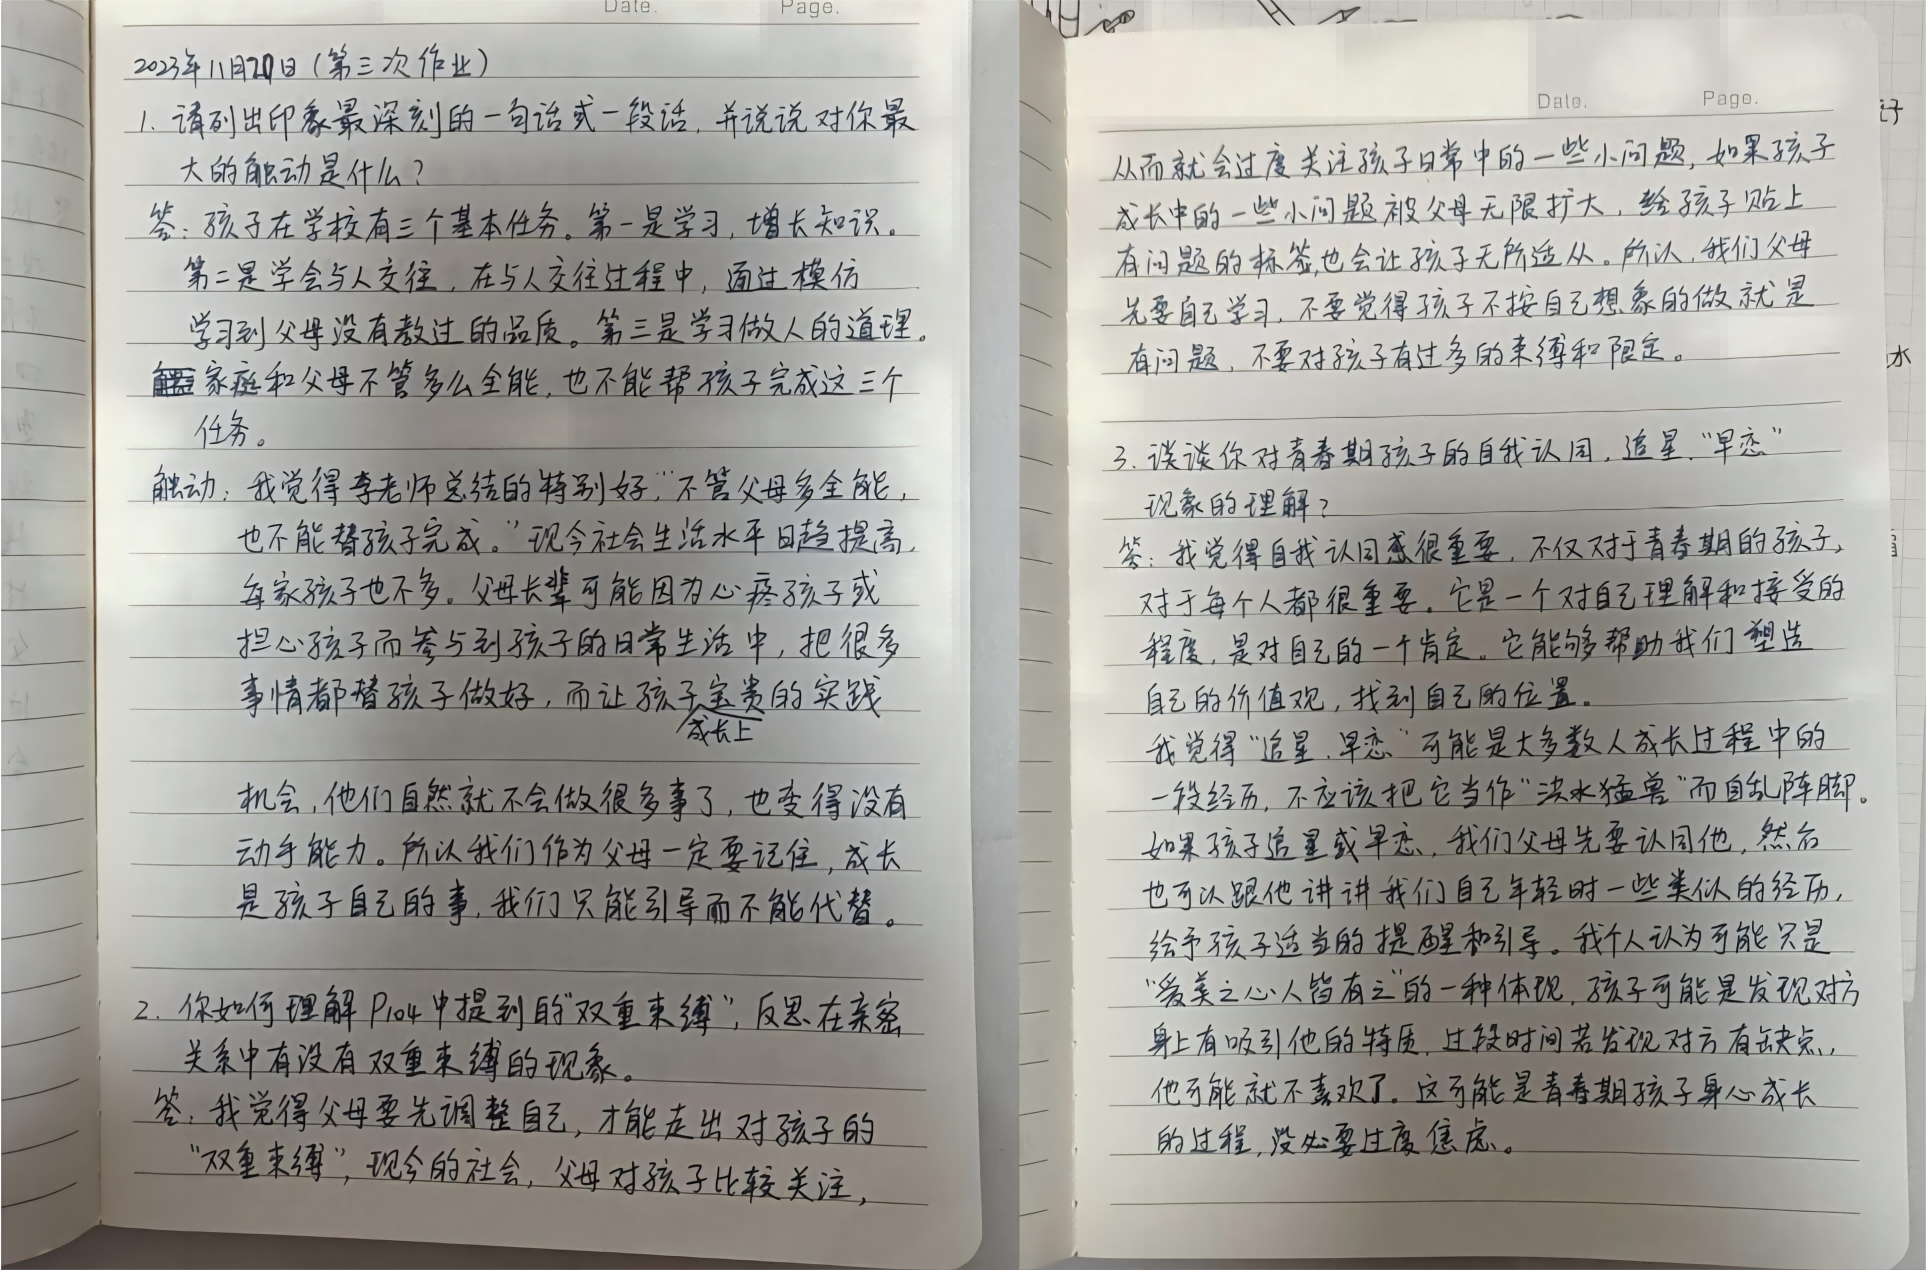 Date.    Page.
2023年11月20日（第三次作业）
1. 请列出印象最深刻的一句话或一段话，并说说对你最
大的触动是什么？
答：孩子在学校有三个基本任务。第一是学习，增长知识。
第二是学会与人交往，在与人交往过程中，通过模仿
学习到父母没有教过的品质。第三是学习做人的道理。
家庭和父母不管多么全能，也不能帮孩子完成这三个
任务。
触动：我觉得李老师总结的特别好，“不管父母多全能，
也不能替孩子完成。”现今社会生活水平日趋提高，
每家孩子也不多。父母长辈可能因为心疼孩子或
担心孩子而参与到孩子的日常生活中，把很多
事情都替孩子做好，而让孩子宝贵的实践
成长上
机会，他们自然就不会做很多事了，也变得没有
动手能力。所以我们作为父母一定要记住，成长
是孩子自己的事，我们只能引导而不能代替。
2. 你如何理解P104中提到的“双重束缚”，反思在亲密
关系中有没有双重束缚的现象。
答：我觉得父母要先调整自己，才能走出对孩子的
“双重束缚”，现今的社会，父母对孩子比较关注，
Date.    Page.
从而就会过度关注孩子日常中的一些小问题，如果孩子
成长中的一些小问题被父母无限扩大，给孩子贴上
有问题的标签，也会让孩子无所适从。所以，我们父母
先要自己学习，不要觉得孩子不按自己想象的做就是
有问题，不要对孩子有过多的束缚和限定。
3. 谈谈你对青春期孩子的自我认同，追星、“早恋”
现象的理解？
答：我觉得自我认同感很重要，不仅对于青春期的孩子，
对于每个人都很重要。它是一个对自己理解和接受的
程度，是对自己的一个肯定。它能够帮助我们塑造
自己的价值观，找到自己的位置。
我觉得“追星、早恋”可能是大多数人成长过程中的
一段经历，不应该把它当作“洪水猛兽”而自乱阵脚。
如果孩子追星或早恋，我们父母先要认同他，然后
也可以跟他讲讲我们自己年轻时一些类似的经历，
给予孩子适当的提醒和引导。我个人认为可能只是
“爱美之心人皆有之”的一种体现，孩子可能是发现对方
身上有吸引他的特质，过段时间若发现对方有缺点，
他可能就不喜欢了。这可能是青春期孩子身心成长
的过程，没必要过度焦虑。
水